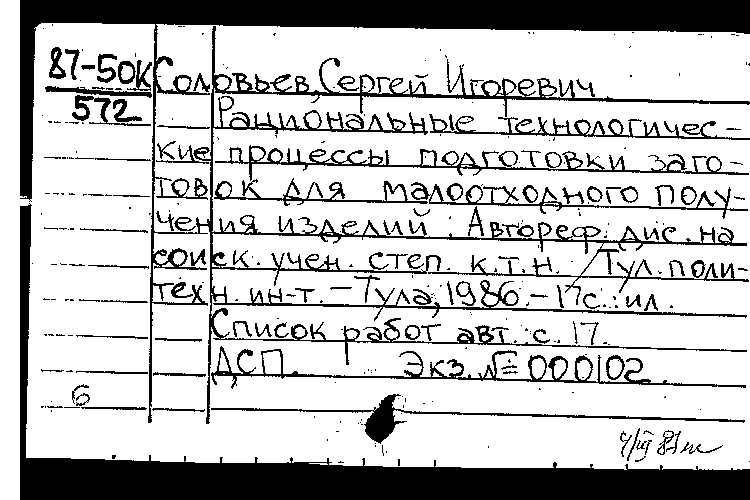 87-50К Соловьев, Сергей Игоревич
572 Рациональные технологичес-
кие процессы подготовки заго-
товок для малоотходного полу-
чения изделий : Автореф. дис. на
соиск. учен. степ. к.т.н. / Тул. поли-
техн. ин-т. – Тула, 1986. – 17с. : ил.
Список работ авт. : с. 17.
ДСП. Экз. № 000102.
6